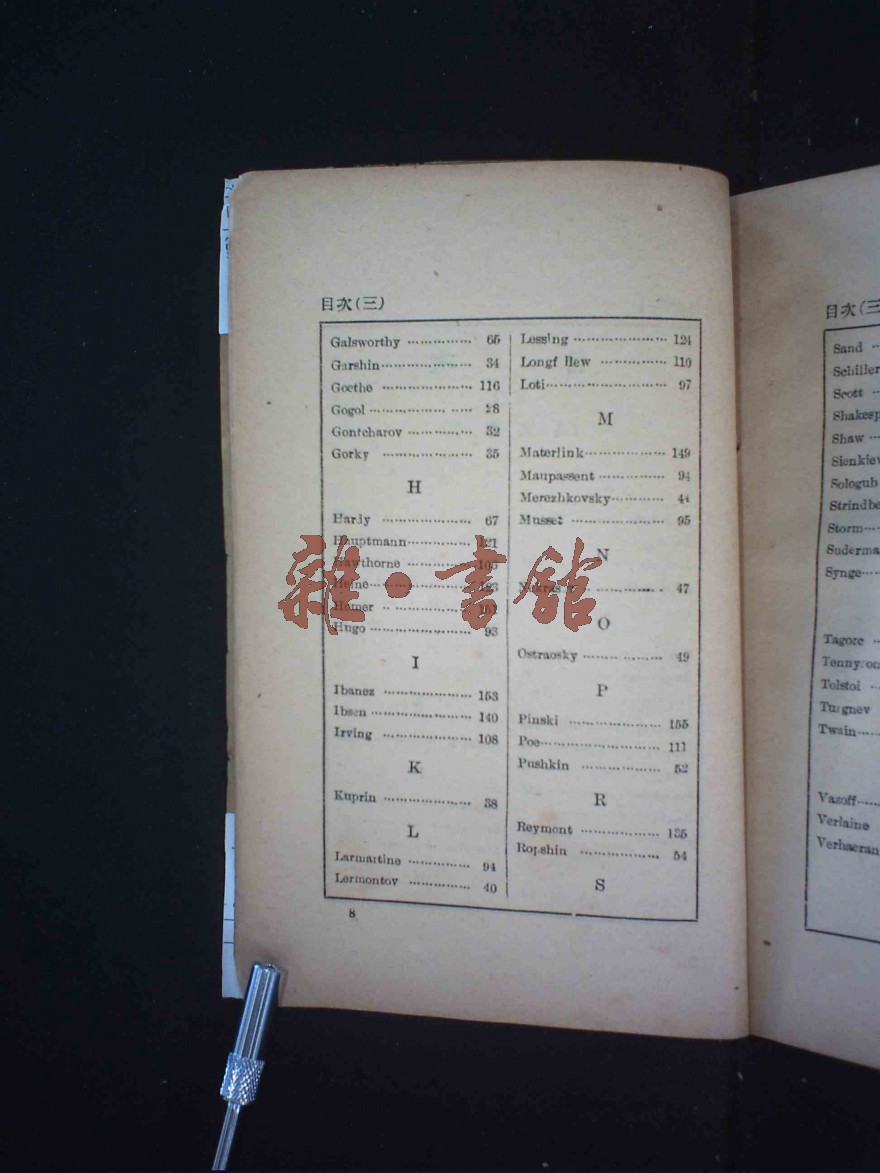 目次(三)
Galsworthy 65
Garshin 34
Goethe 116
Gogol 28
Gontcharov 32
Gorky 35
H
Hardy 67
Hauptmann 121
Hawthorne
Heine 123
Homer 151
Hugo 93
I
Ibanez 153
Ibsen 140
Irving 108
K
Kuprin 38
L
Larmartine 94
Lermontov 40
8
Lessing 124
Longf llew 110
Loti 97
M
Materlink 149
Maupassent 94
Merezhkovsky 44
Musset 95
N
47
O
Ostraosky 49
P
Pinski 155
Poe 111
Pushkin 52
R
Reymont 135
Ropshin 54
S
雜·書館
目次(三
Sand
Schiller
Scott
Shakesp
Shaw
Sienkiev
Sologub
Strindbe
Storm
Suderma
Synge
Tagore
Tennyson
Tolstoi
Turgnev
Twain
Vazoff
Verlaine
Verhaeran